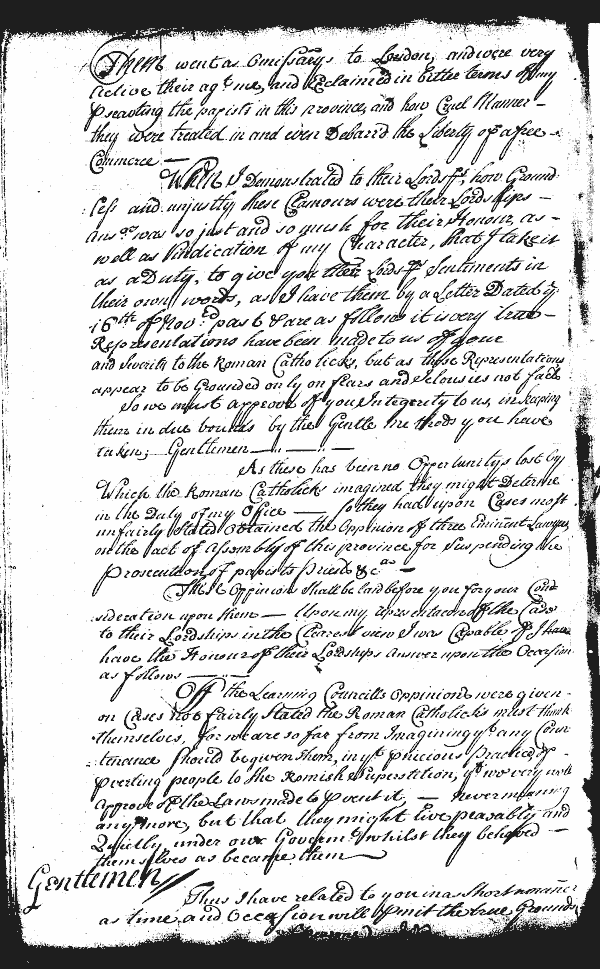 These went as Emissarys to London, and were very
active their ag.t me, and Exclaimed in bitter terms of my
Psecuting the papists in this province, and how Cruel Manner –
they were treated in and even Debarrd the Liberty of a free –
Commerce —
When I Demonstrated to their Lords.ps how Ground
less and unjustly these Clamours were their Lordships –
Ans.er was so just and so much for their Honour, as –
well as Vindication of my Character, that I take it
as a Duty, to give you their Lords.ps Sentiments in
their own words, as I have them by a Letter Dated y.e
16th of Nov. past & are as follow it is very true –
Representations have been made to us of your
and Severity to the Roman Catholicks, but as those Representations
appear to be Grounded only on fears and Jelousies not facts
So we must approve of you Integerity to us, in keeping
them in due bounds by the Gentle methods you have
taken; Gentlemen —
As these has been no Oppertunitys lost by
Which the Roman Catholicks imagined they might Deterne
in the Duty of my Ofice — So they had upon Cases most
unfairly Stated Obtained the Oppinion of three Eminent Lawyers,
on the act of Assembly of this province for Suspending the
Prosecution of papists Priests &c.as —
These Oppinions shall be laid before you for your Con
sideration upon them — Upon my representacon of the Case
to their Lordships in the Clearest view I was Capable of I have
have the Honour of their Lordships Answer upon the Occasion
as follows —
Off the Learning Councills Oppinions were given –
on Cases not fairly Stated the Roman Catholicks must thank
themselves, for we are so far from Imagining y.t any Coun
tenance Should be given them, in y.t pnicious practice of –
pverting people to the Romish Superstition, y.t we very well
Approve of the Laws made to pvent it, — never meaning
any more, but that they might live peasably and
Quietly, under our Governm.t whilst they behaved —
themselves as became them —
Gentlemen //
Thus I have related to you in as Short a manner
as time and Occasion will pmit the true Grounds